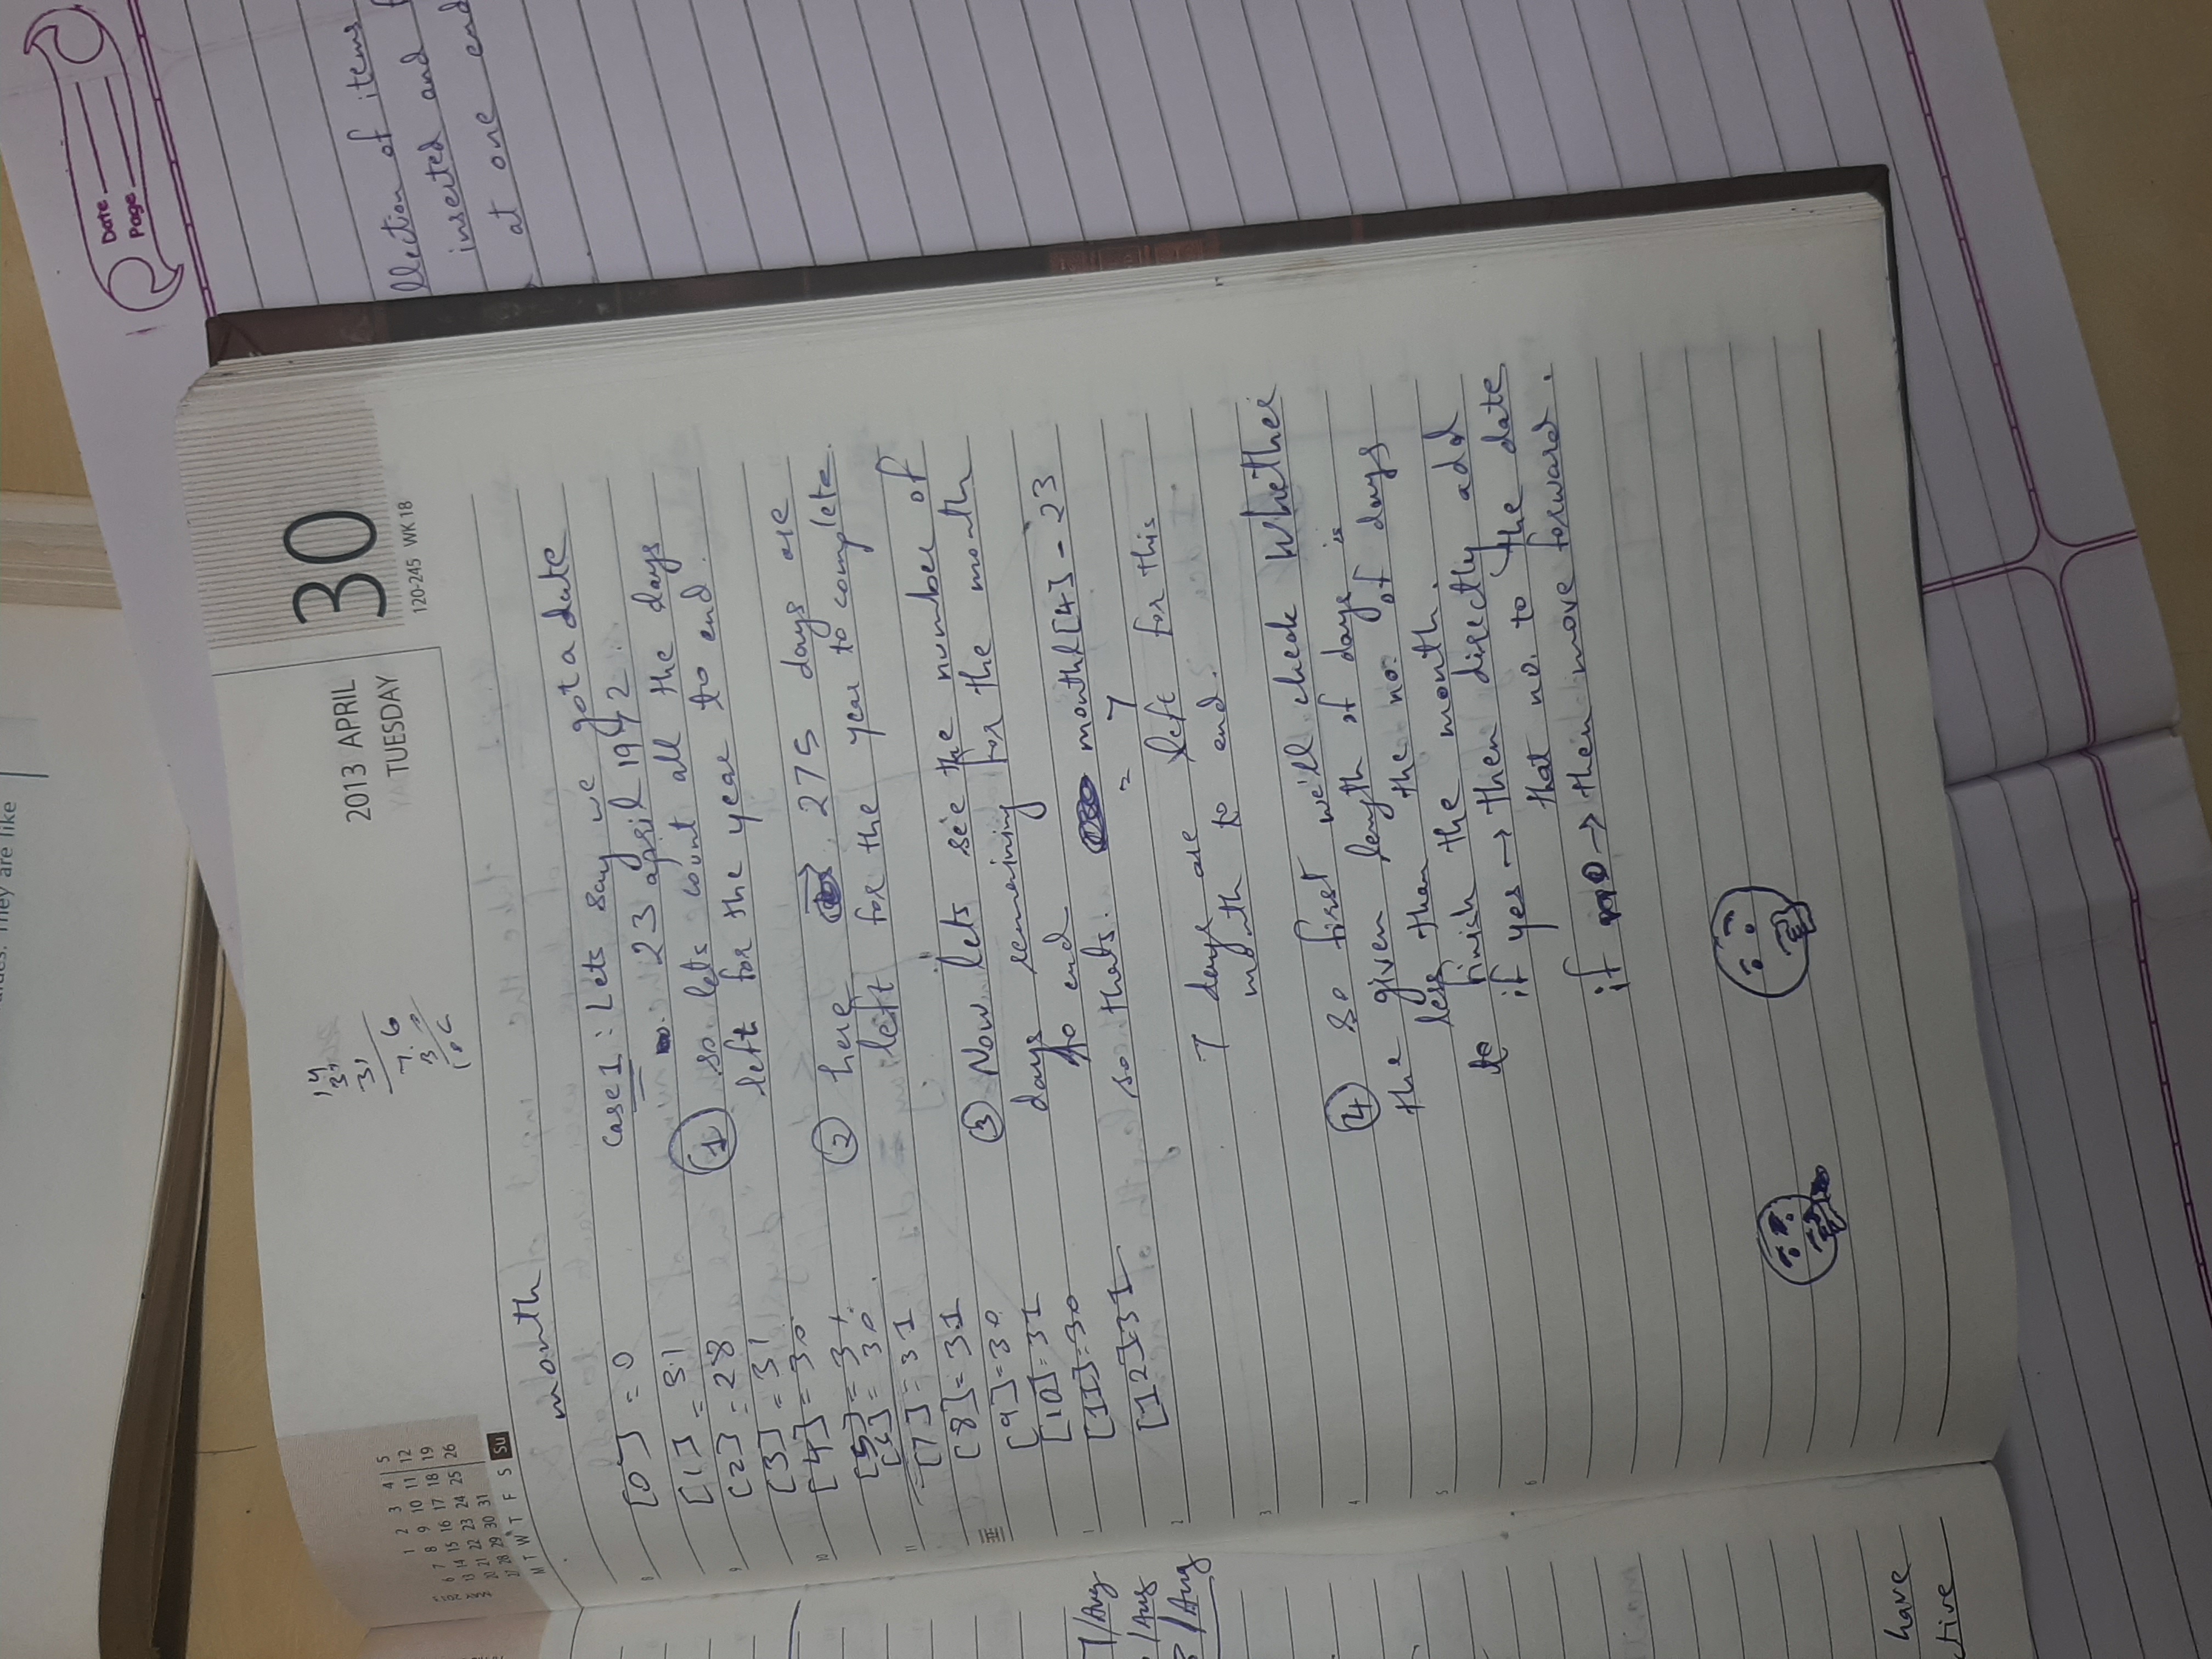 They are like
Date
Page
llection of items
inserted and
at one end
2013 APRIL
TUESDAY
30
120-245 WK 18
14
31
31
7.6
3 0
106
1 2 3 4 5
6 7 8 9 10 11 12
13 14 15 16 17 18 19
20 21 22 23 24 25 26
27 28 29 30 31
M T W T F S Su
month
[0] = 0
[1] = 31
[2] = 28
[3] = 31
[4] = 30
[5] = 31
[6] = 30
[7] = 31
[8] = 31
[9] = 30
[10] = 31
[11] = 30
[12] = 31
case 1 : Lets say we got a date
23 april 1942.
1 so lets count all the days
left for the year to end.
2 here 275 days are
left for the year to complete.
3 Now lets see the number of
days remaining for the month
to end
so thats. month[4] - 23
= 7
7 days are left for this
month to end.
4 so first we'll check Whether
the given length of days is
less than the no. of days
to finish the month.
if yes → then directly add
that no. to the date
if no → then move forward.
8
9
10
11
1
2
3
4
5
6
7/Aug
/Aug
/Aug
have
ctive